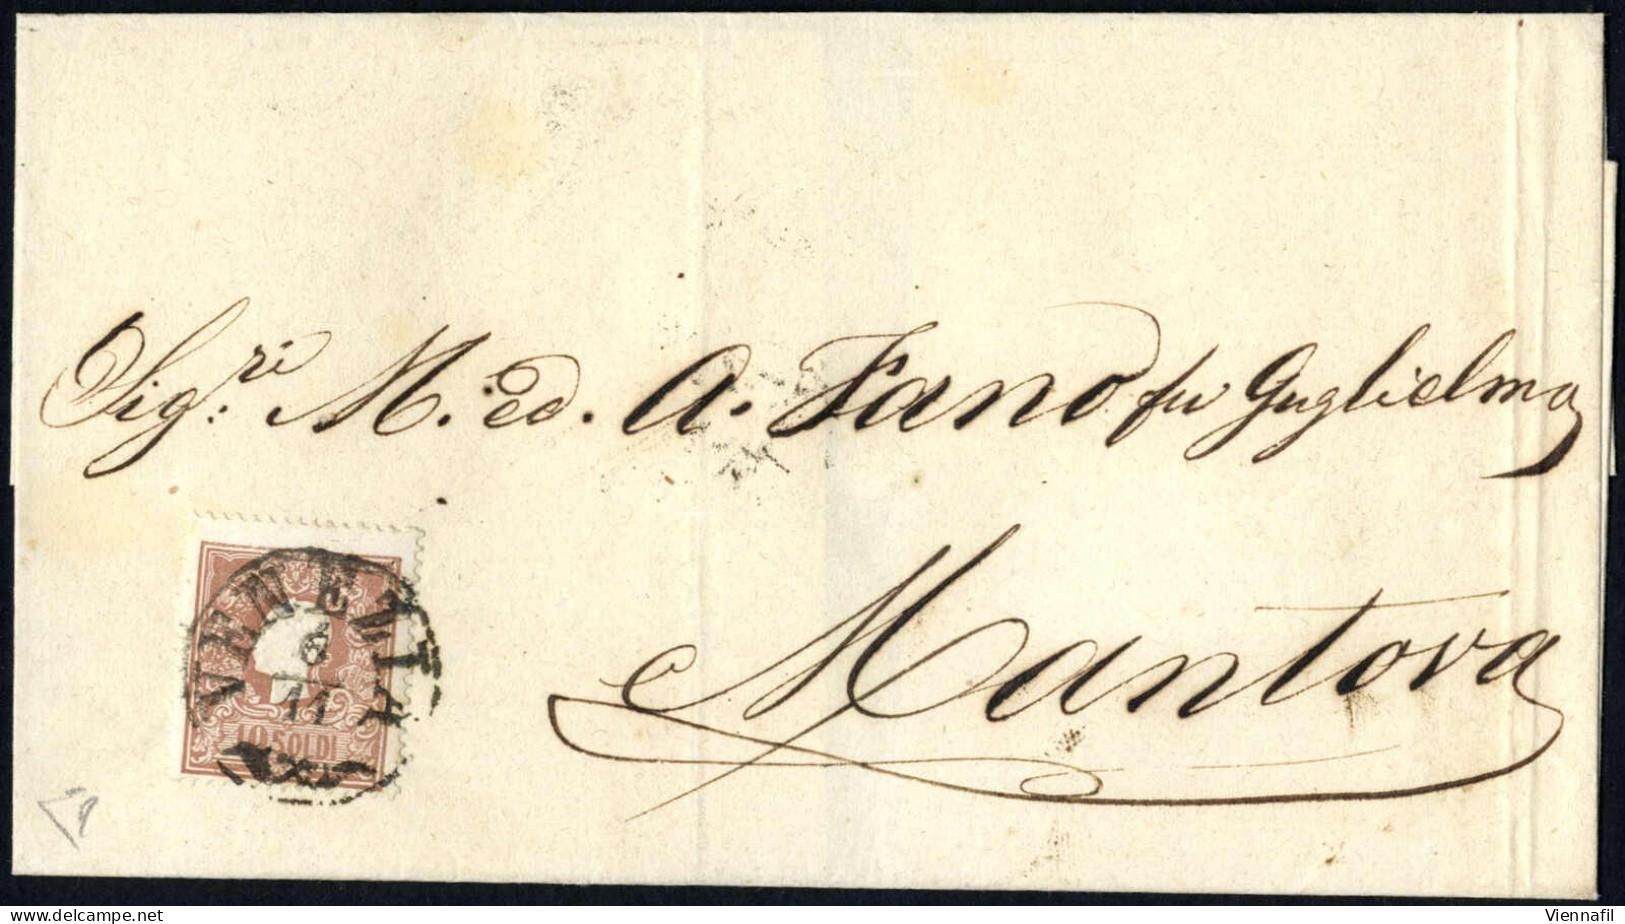 Sig:ri M. ed. A. Fano fu Guglielmo
Mantova
VENEZIA
6
11
10 SOLDI
www.delcampe.net
Viennafil